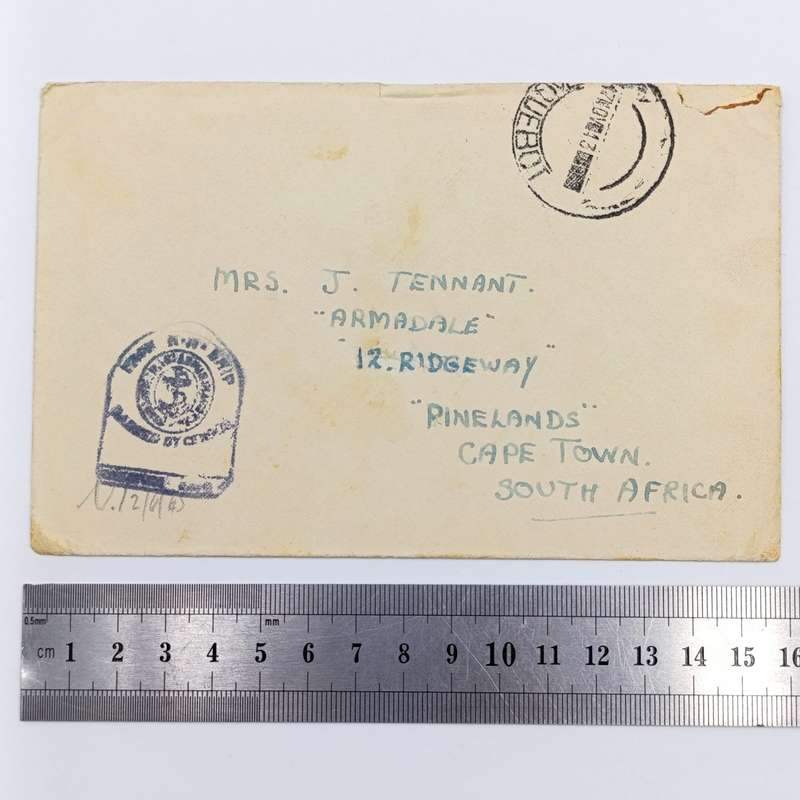 PAQUEBOT
MRS. J. TENNANT.
"ARMADALE"
"12. RIDGEWAY"
"PINELANDS"
CAPE TOWN.
SOUTH AFRICA.
FROM H.M. SHIP
PASSED BY CENSOR
0.5mm
mm
cm 1 2 3 4 5 6 7 8 9 10 11 12 13 14 15 16